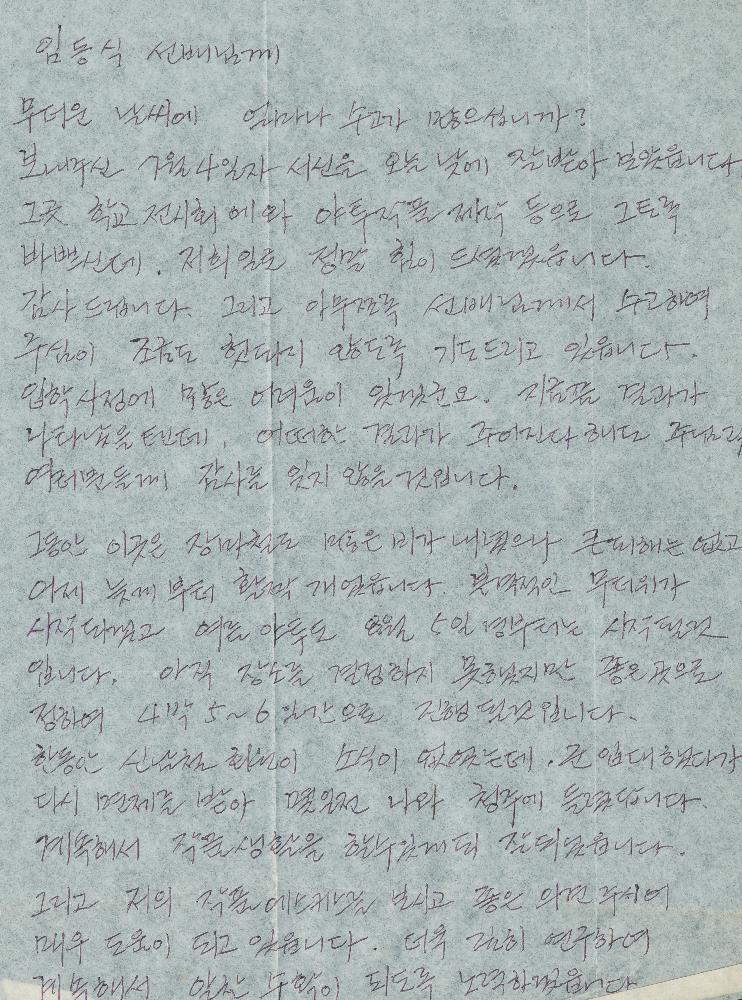 임동식 선배님께
무더운 날씨에 얼마나 수고가 많으십니까?
보내주신 7월 4일자 서신을 오늘 낮에 잘 받아 보았읍니다
그곳 학교 전시회에와 야투작품 제작 등으로 그토록
바쁘신데. 저희 일로 정말 힘이 드셨겠읍니다.
감사 드립니다. 그리고 아무쪼록 선배님께서 수고하여
주심이 조금도 헛되지 않도록 기도드리고 있읍니다.
입학사정에 많은 어려움이 있겠군요. 지금쯤 결과가
나타났을텐데, 어떠한 결과가 주어진다 해도 주님과
여러분들께 감사를 잊지 않을 것입니다.
그동안 이곳은 장마철로 많은 비가 내렸으나 큰 피해는 없고
어제 늦게부터 활짝 개었읍니다. 본격적인 무더위가
시작되겠고 여름 야투도 8월 5일경부터는 시작될것
입니다. 아직 장소를 결정하지 못했지만 좋은 곳으로
정하여 4박 5~6일간으로 진행될것입니다.
한동안 신남철 회원이 소식이 없었는데. 군 입대했다가
다시 면제를 받아 몇일전 나와 청주에 들렸답니다.
계속해서 작품생활을 할수있게 되 잘되었읍니다.
그리고 저의 작품 에스키스를 보시고 좋은 의견 주시어
매우 도움이 되고 있읍니다. 더욱 깊히 연구하여
계속해서 알찬 노력이 되도록 노력하겠읍니다